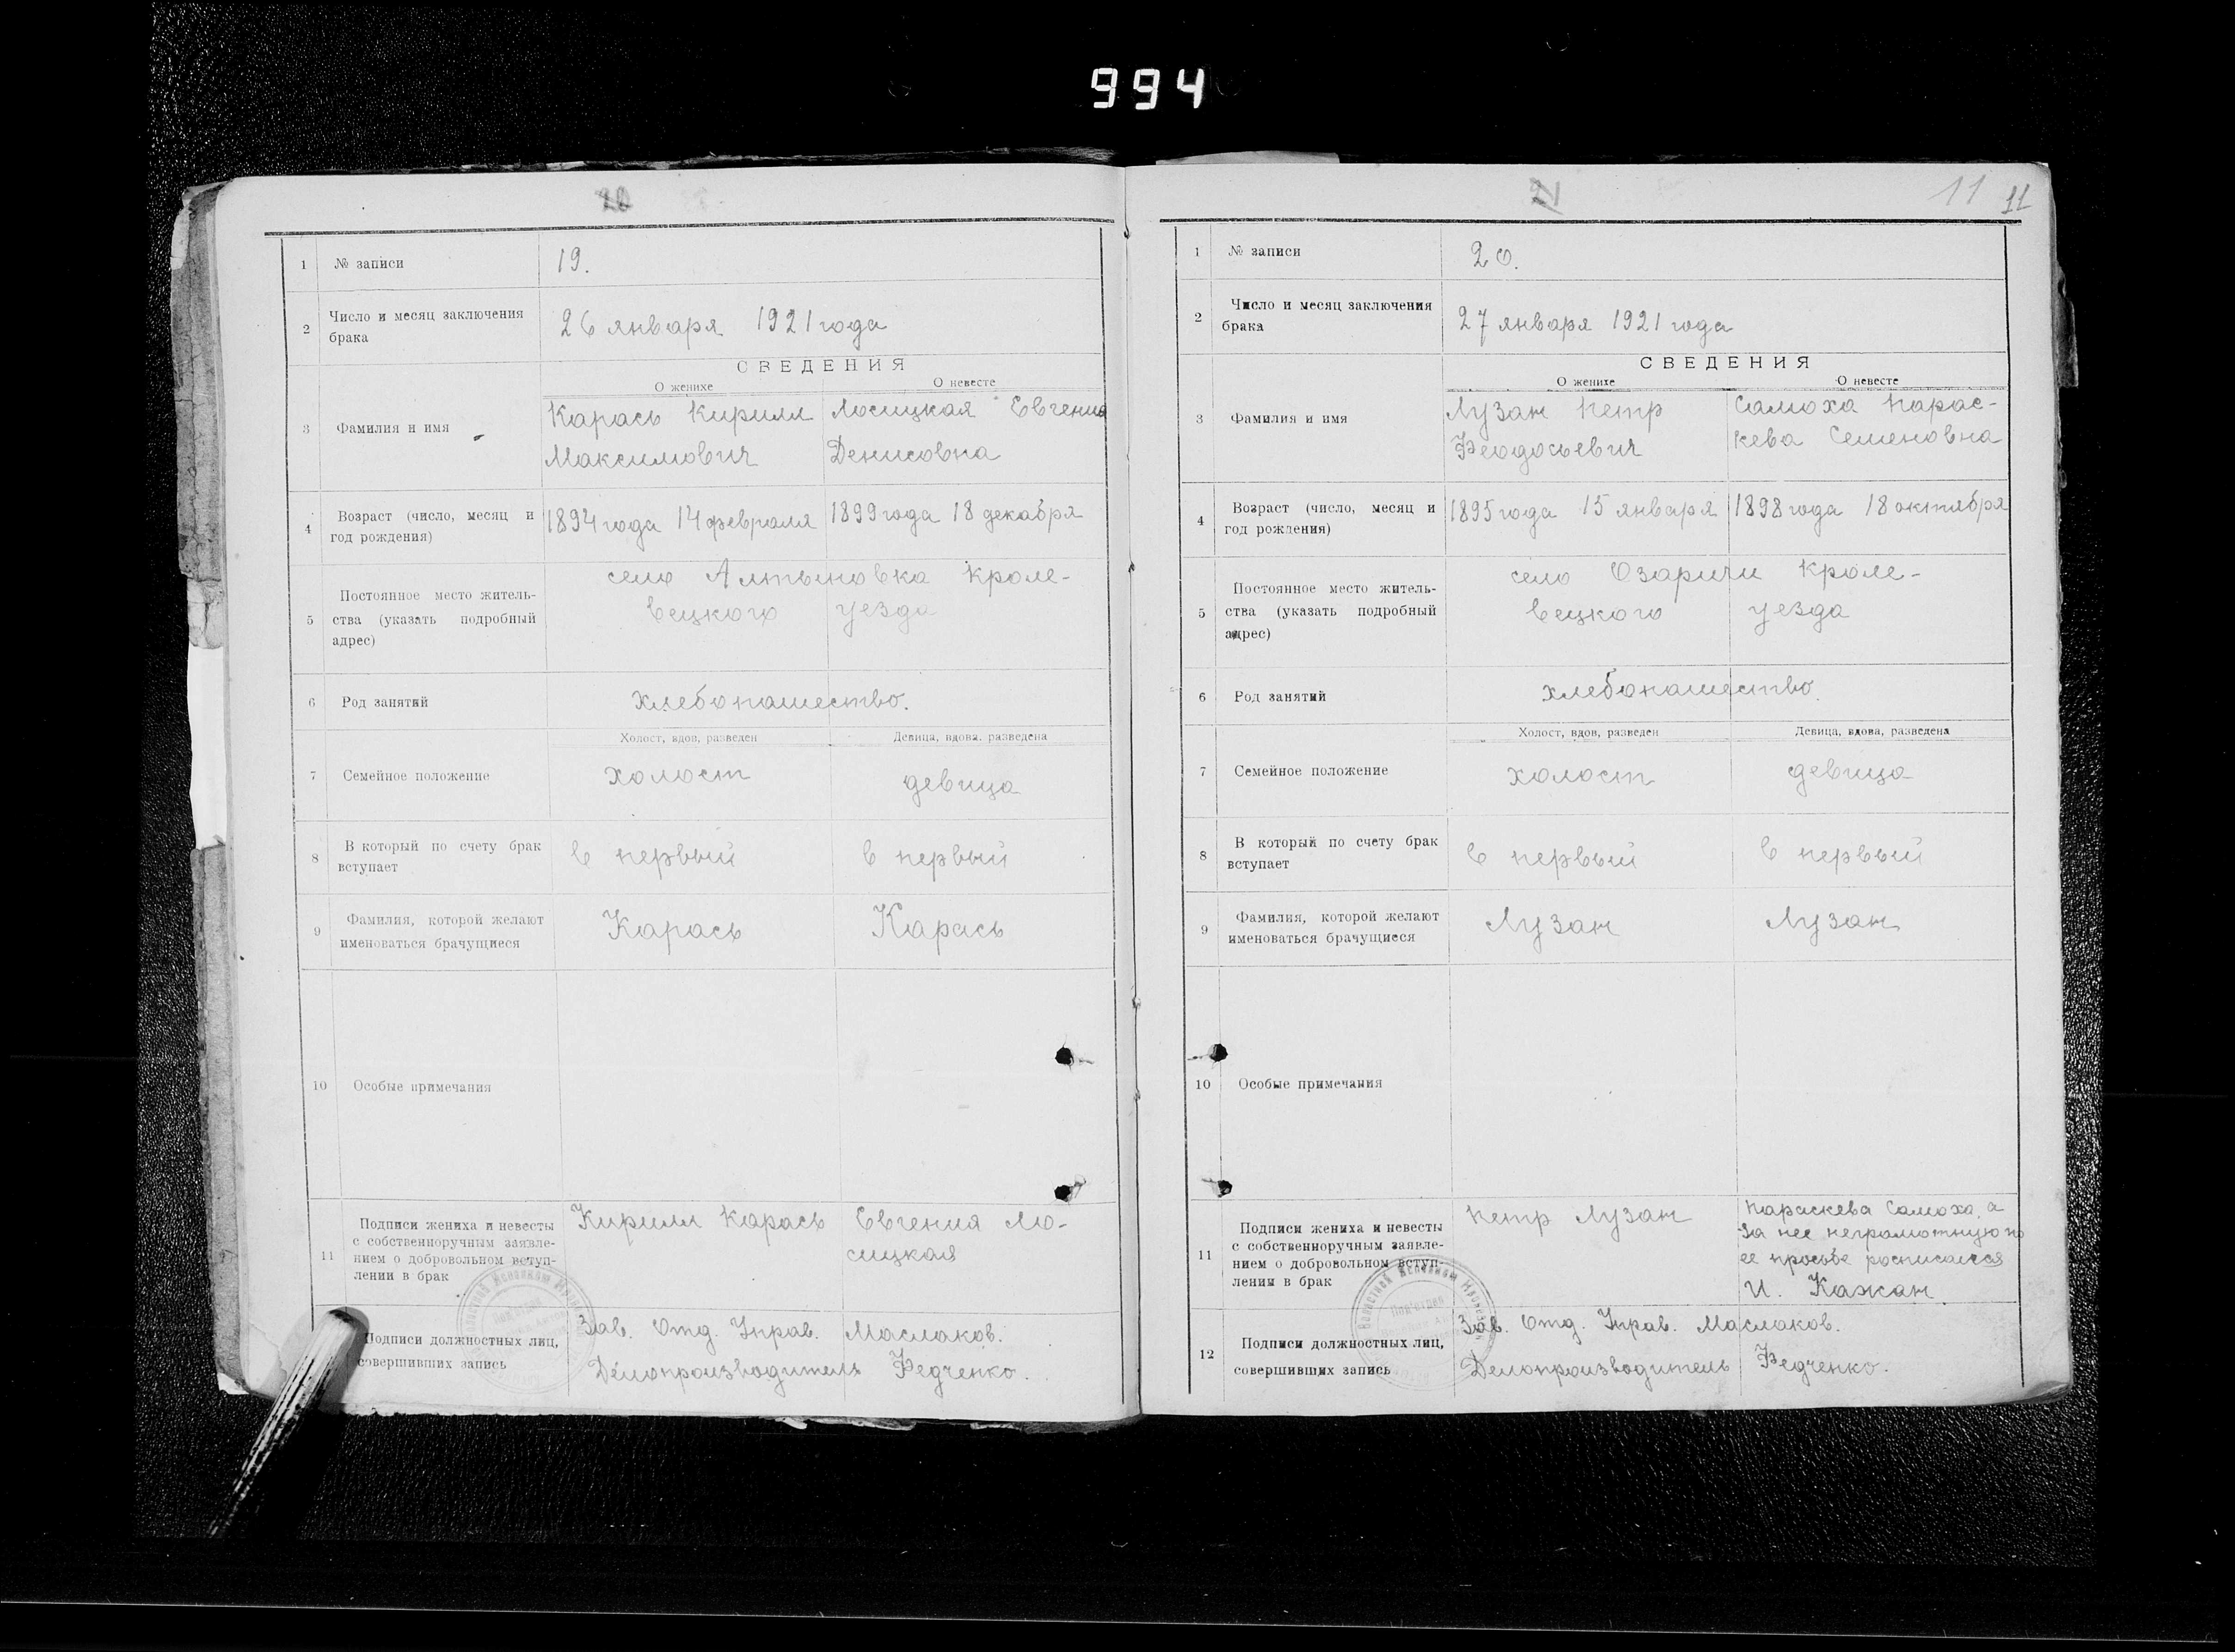 994
20
1 № записи 19.
2 Число и месяц заключения
брака
26 января 1921 года
СВЕДЕНИЯ
О женихе О невесте
3 Фамилия и имя
Карась Кирилл Лосицкая Евгения
Максимович Денисовна
4 Возраст (число, месяц и
год рождения)
1894 года 14 февраля 1899 года 18 декабря
5 Постоянное место житель-
ства (указать подробный
адрес)
село Алтыновка Кроле-
вецкого уезда
6 Род занятий хлебопашество.
Холост, вдов, разведен Девица, вдова, разведена
7 Семейное положение холост девица
8 В который по счету брак
вступает
в первый в первый
9 Фамилия, которой желают
именоваться брачущиеся
Карась Карась
10 Особые примечания
11 Подписи жениха и невесты
с собственноручным заявле-
нием о добровольном вступ-
лении в брак
Кирилл Карась Евгения Ло-
сицкая
Подписи должностных лиц,
совершивших запись
Зав. Отд. Управ. Маслаков.
Делопроизводитель Федченко.
21 11 11
1 № записи 20.
2 Число и месяц заключения
брака
27 января 1921 года
СВЕДЕНИЯ
О женихе О невесте
3 Фамилия и имя
Лузан Петр Самоха Парас-
Феодосьевич кева Семеновна
4 Возраст (число, месяц и
год рождения)
1895 года 15 января 1898 года 18 октября
5 Постоянное место житель-
ства (указать подробный
адрес)
село Озаричи Кроле-
вецкого уезда
6 Род занятий хлебопашество.
Холост, вдов, разведен Девица, вдова, разведена
7 Семейное положение холост девица
8 В который по счету брак
вступает
в первый в первый
9 Фамилия, которой желают
именоваться брачущиеся
Лузан Лузан
10 Особые примечания
11 Подписи жениха и невесты
с собственноручным заявле-
нием о добровольном вступ-
лении в брак
Петр Лузан Параскева Самоха, а
за нее неграмотную по
ее просьбе росписался
И. Кажан.
12 Подписи должностных лиц,
совершивших запись
Зав. Отд. Управ. Маслаков.
Делопроизводитель Федченко.